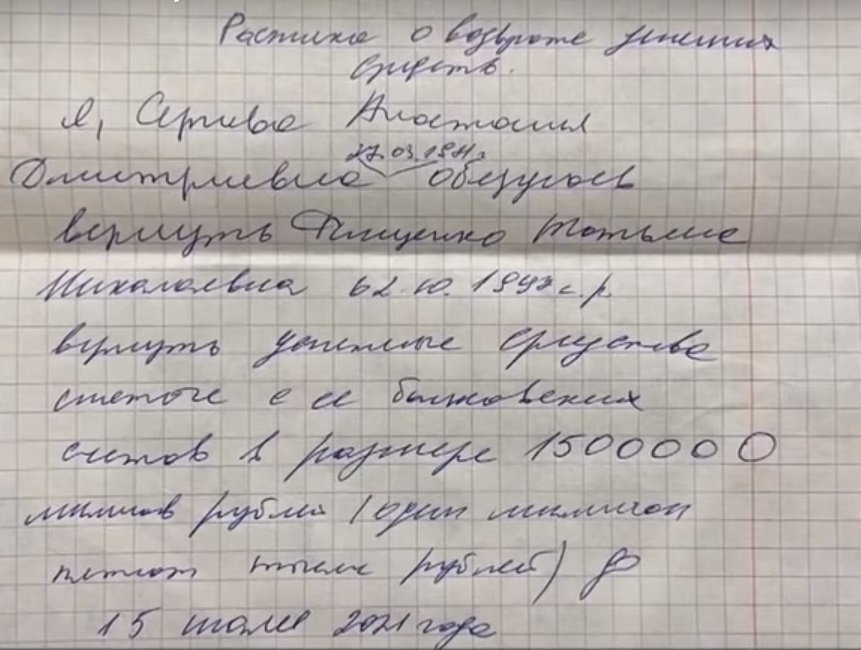 Расписка о возврате денежных
средств.
Я, Сергиева Анастасия
27.03.1991г
Дмитриевна обязуюсь
вернуть Тищенко Татьяне
Николаевна 1997 г.р.
вернуть денежные средства
снятые с ее банковских
счетов в размере 1500000
милионов рублей (один милион
петьсот тысяч рублей) до
15 июля 2021 года